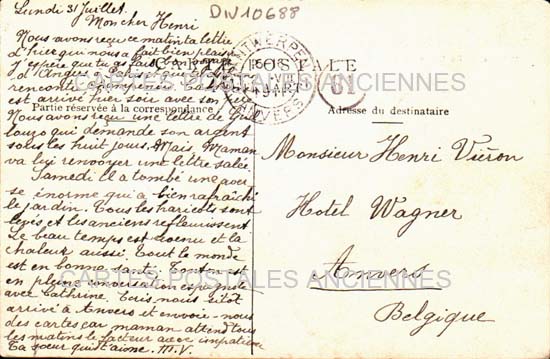 DW10688
Lundi 31 Juillet.
Mon cher Henri
Nous avons reçu ce matin ta lettre
d'hier qui nous a fait bien plaisir
J'espère que tu as fait bon voyage
d'Angers à
rencontré
est arrivé hier soir avec son père
CARTE POSTALE
CARTES POSTALES ANCIENNES
ANTWERPEN
ANVERS
61
Partie réservée à la correspondance
Adresse du destinataire
Nous avons reçu une lettre de
qui demande son argent
sous les huit jours. Mais Maman
va lui renvoyer une lettre salée.
Samedi il a tombé une aver
se énorme qui a bien rafraîchi
le jardin. Tous les haricots sont
levés et les anciens refleurissent
Le beau temps est revenu et la
chaleur aussi. Tout le monde
est en bonne santé. Tonton
en pleine conversation espagnole
avec Cathrine. Ecris nous sitôt
arrivé à Anvers et envoie-nous
des cartes car maman attend tous
les matins le facteur avec impatience
Ta sœur qui t'aime. M.V.
Monsieur Henri Viéron
Hotel Wagner
Anvers
Belgique
CARTES POSTALES ANCIENNES